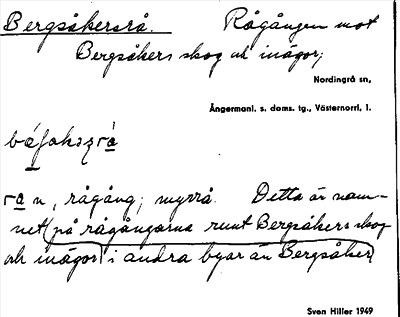 Bergsåkersrå. Rågången mot
Bergsåkers skog och inägor;
Nordingrå sn,
Ångermanl. s. doms. tg., Västernorrl. l.
ra n, rågång; myrrå. Detta är nam-
net på rågångarna runt Bergsåkers skog
och inägor i andra byar än Bergsåker
Sven Hiller 1949